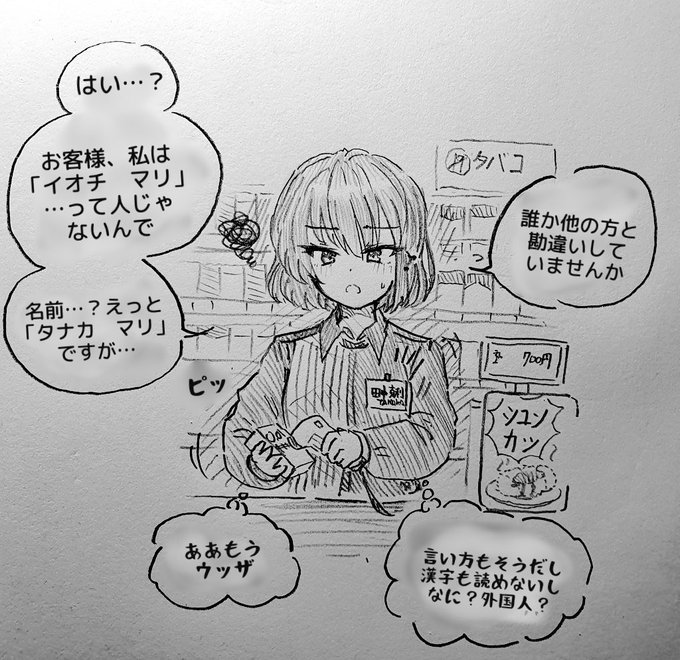 はい…？
お客様、私は
「イオチ　マリ」
…って人じゃ
ないんで
名前…？えっと
「タナカ　マリ」
ですが…
タバコ
誰か他の方と
勘違いして
いませんか
ピッ
700円
シュン
カツ
ああもう
ウッザ
言い方もそうだし
漢字も読めないし
なに？外国人？